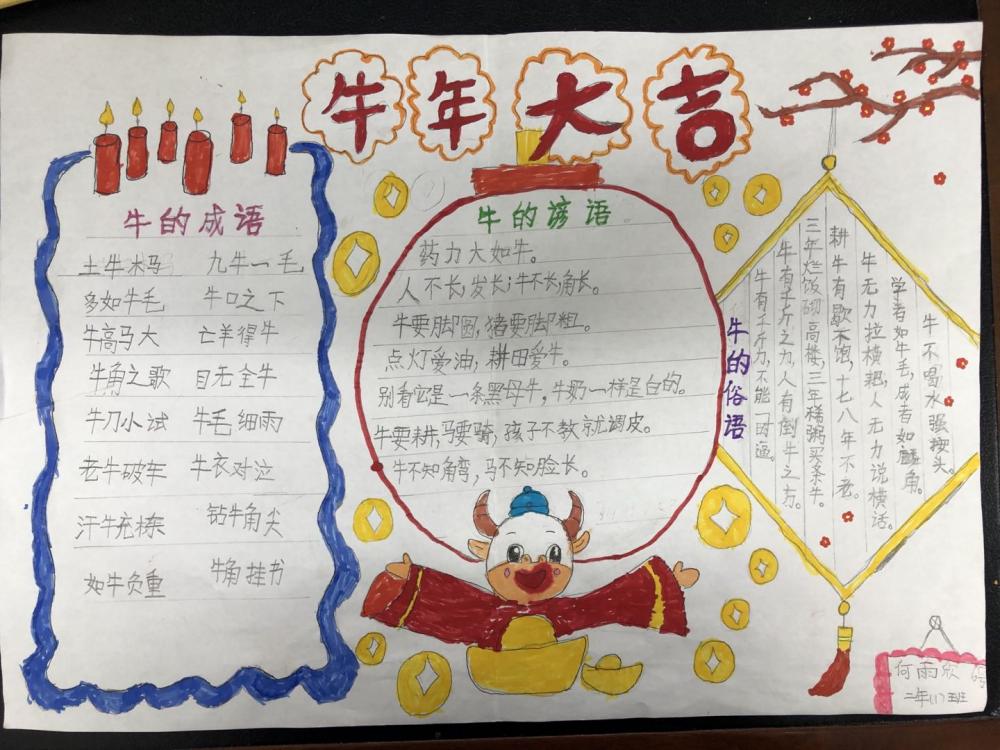 牛年大吉
牛的成语
土牛木马 九牛一毛
多如牛毛 牛口之下
牛高马大 亡羊得牛
牛角之歌 目无全牛
牛刀小试 牛毛细雨
老牛破车 牛衣对泣
汗牛充栋 钻牛角尖
如牛负重 牛角挂书
牛的谚语
药力大如牛。
人不长,发长;牛不长,角长。
牛要脚圆,猪要脚粗。
点灯爱油,耕田爱牛。
别看它是一条黑母牛,牛奶一样是白的。
牛要耕,马要骑,孩子不教就调皮。
牛不知角弯,马不知脸长。
牛的俗语
牛不喝水强按头。
学者如牛毛,成者如麟角。
牛无力拉横耙,人无力说横话。
耕牛有歇不饱,七七八年不老。
三年烂饭砌高楼,三年稀粥买条牛。
牛有千斤之力,人有倒牛之方。
牛有千斤力,不能一时逼。
何雨欣
二年(1)班